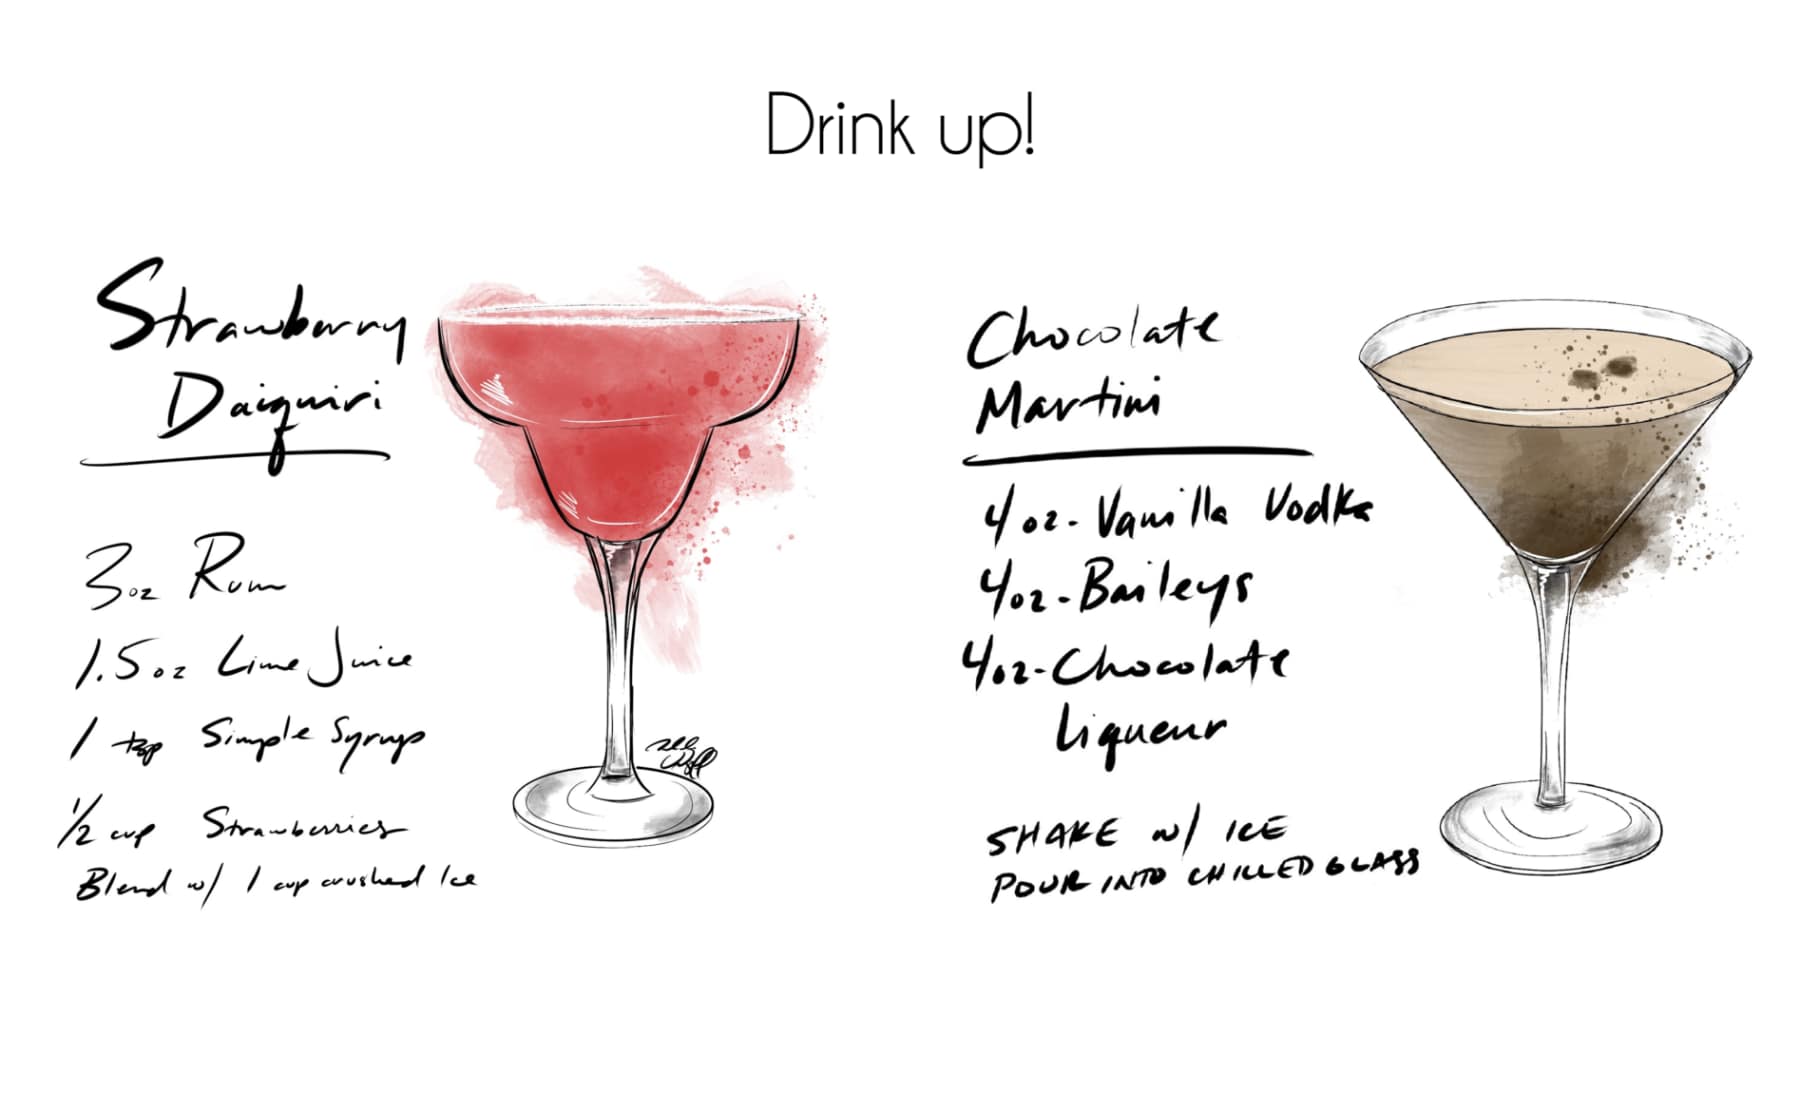 Drink up!
Strawberry
Daiquiri
3oz Rum
1.5oz Lime Juice
1 tsp Simple Syrup
1/2 cup Strawberries
Blend w/ 1 cup crushed Ice
Chocolate
Martini
4oz-Vanilla Vodka
4oz-Baileys
4oz-Chocolate
Liqueur
SHAKE w/ ICE
POUR INTO CHILLED GLASS